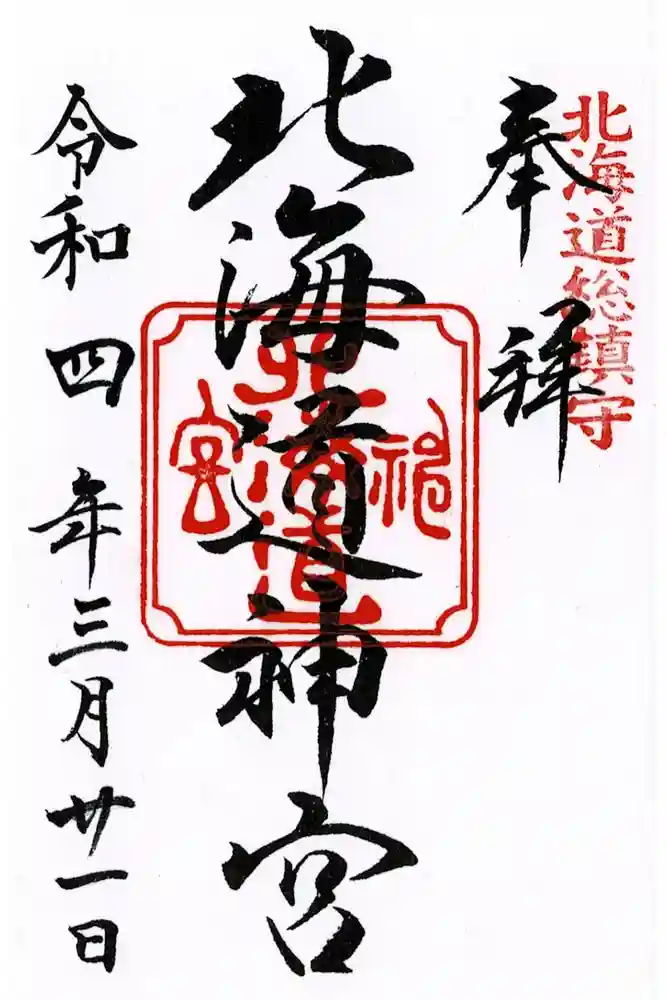 北海道総鎮守
奉拝
北海道神宮
北海道神宮
令和四年三月廿一日